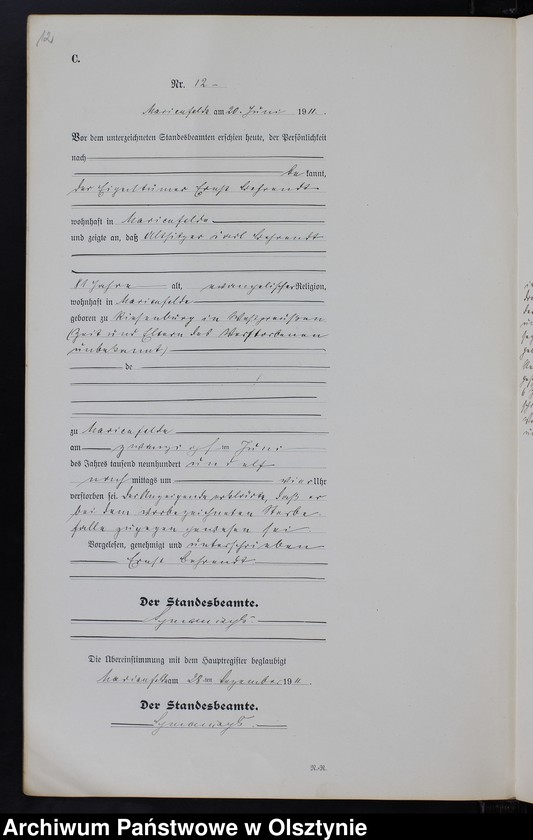 12
C.
Nr. 12
Marienfelde am 20. Juni 1911.
Vor dem unterzeichneten Standesbeamten erschien heute, der Persönlichkeit
nach
be kannt,
der Eigentümer Ernst Behrendt
wohnhaft in Marienfelde
und zeigte an, daß Altsitzer Karl Behrendt
81 Jahre alt, evangelischer Religion,
wohnhaft in Marienfelde
geboren zu Riesenburg in Westpreußen
(Zeit und Eltern des Verstorbenen
unbekannt)
de
zu Marienfelde
am zwanzigsten Juni
des Jahres tausend neunhundert und elf
nach mittags um vier Uhr
verstorben sei. Der Anzeigende erklärte, daß er
bei dem vorbezeichneten Sterbe-
falle zugegen gewesen sei.
Vorgelesen, genehmigt und unterschrieben
Ernst Behrendt
Der Standesbeamte.
Die Übereinstimmung mit dem Hauptregister beglaubigt
Marienfelde am Dezember 1911.
Der Standesbeamte.
R.-R.
Archiwum Państwowe w Olsztynie